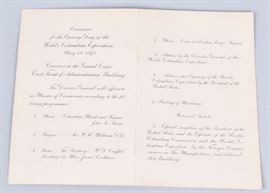 Ceremonies
for the Opening Day of the
World's Columbian Exposition
May 1st 1893
Exercises in the Grand Court
East Front of Administration Building
The Director General will officiate
as Master of Ceremonies according to the following programme
1 Music. Columbian March and Hymn
John K. Paine
2 Prayer. Rev. W. H. Milburn D.D.
3 Poem. "The Prophecy" W. D. Croffut
Reading by Miss Jessie Couthoui
4 Music
5 Address by the Director General of the
World's Columbian Exposition
6 Address and Opening of the World's
Columbian Exposition by the President of the
United States
7 Starting of Machinery
National Salute
8 Official reception of the President of the
United States and the Officials of the World's
Columbian Commission and the World's
Columbian Exposition, by the Foreign Commissioners in the Manufactures and Liberal
Arts Building